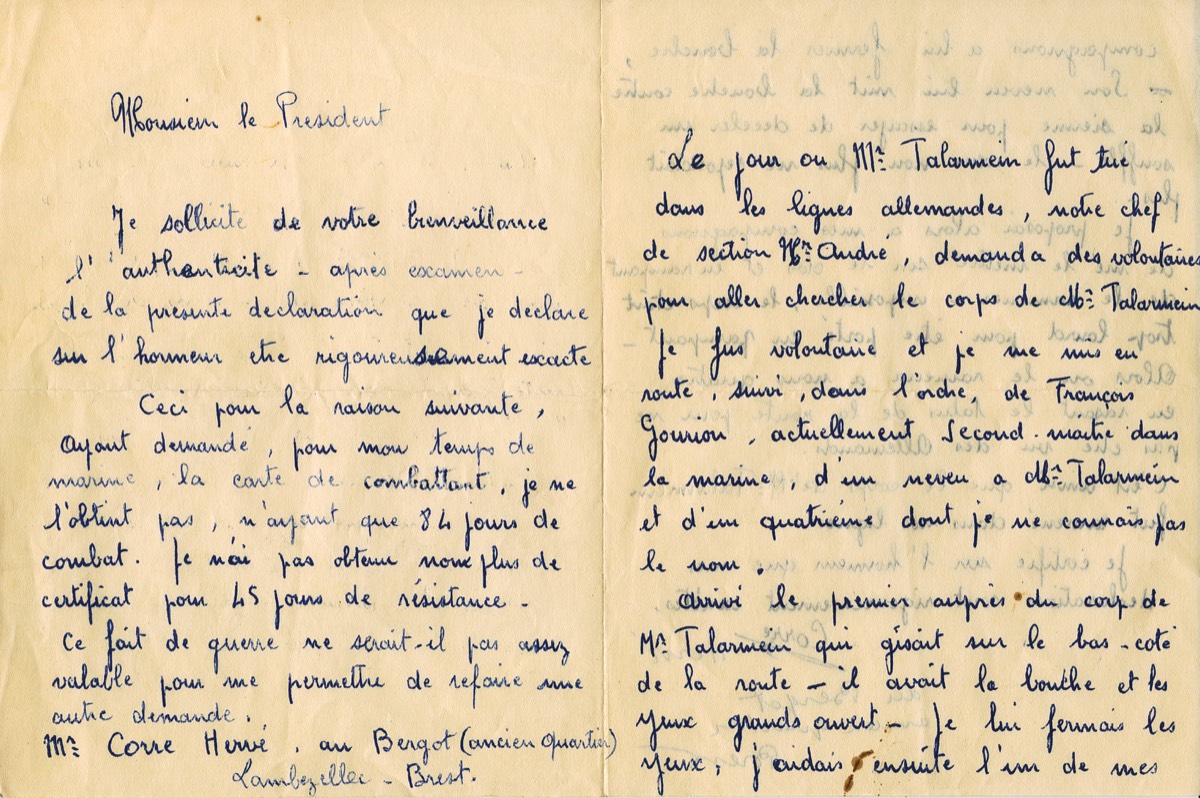 Monsieur le President
Je sollicite de votre bienveillance
l'authenticite - après examen -
de la presente declaration que je declare
sur l'honneur etre rigoureusement exacte
Ceci pour la raison suivante,
Ayant demandé, pour mon temps de
marine, la carte de combattant, je ne
l'obtint pas, n'ayant que 84 jours de
combat. Je n'ai pas obtenu non plus de
certificat pour 45 jours de résistance -
Ce fait de guerre ne serait-il pas assez
valable pour me permettre de refaire une
autre demande.
Mr Corre Hervé, au Bergot (ancien Quartier)
Lambezellec - Brest.
Le jour ou Mr Talarmein fut tué
dans les lignes allemandes, notre chef
de section Mr André, demanda des volontaires
pour aller chercher le corps de Mr Talarmein
Je fus volontaire et je me mis en
route, suivi, dans l'ordre, de François
Gourion, actuellement Second-maître dans
la marine, d'un neveu a Mr Talarmein
et d'un quatriéme dont je ne connais pas
le nom.
Arrivé le premier auprès du corp de
Mr Talarmein qui gisait sur le bas-coté
de la route - il avait la bouche et les
yeux grands ouvert - Je lui fermais les
yeux, j'aidais ensuite l'un de mes